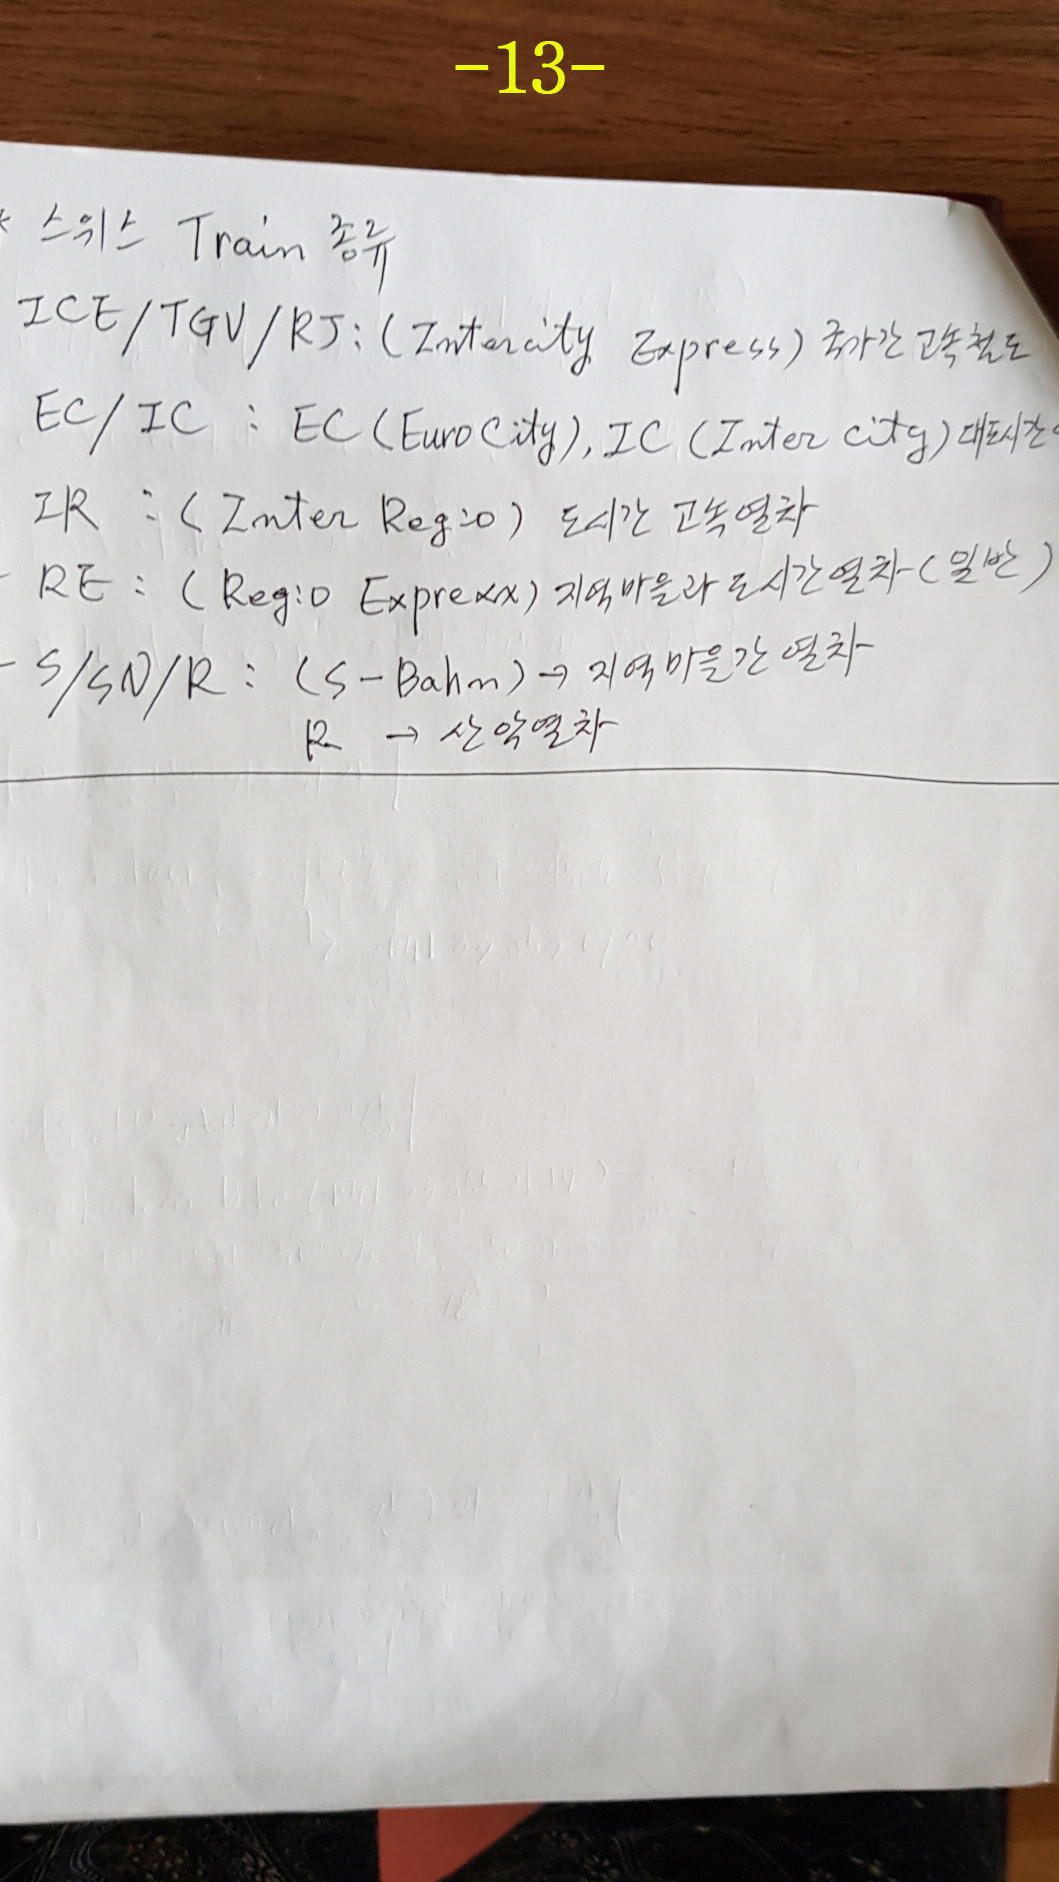 -13-
* 스위스 Train 종류
ICE/TGV/RJ : (Intercity Express) 국가간 고속철도
EC/IC : EC (EuroCity), IC (Inter city) 대도시간
IR : (Inter Regio) 도시간 고속열차
- RE : (Regio Exprexx) 지역마을과 도시간열차 (일반)
- S/SN/R : (S-Bahn) → 지역마을간 열차
R → 산악열차